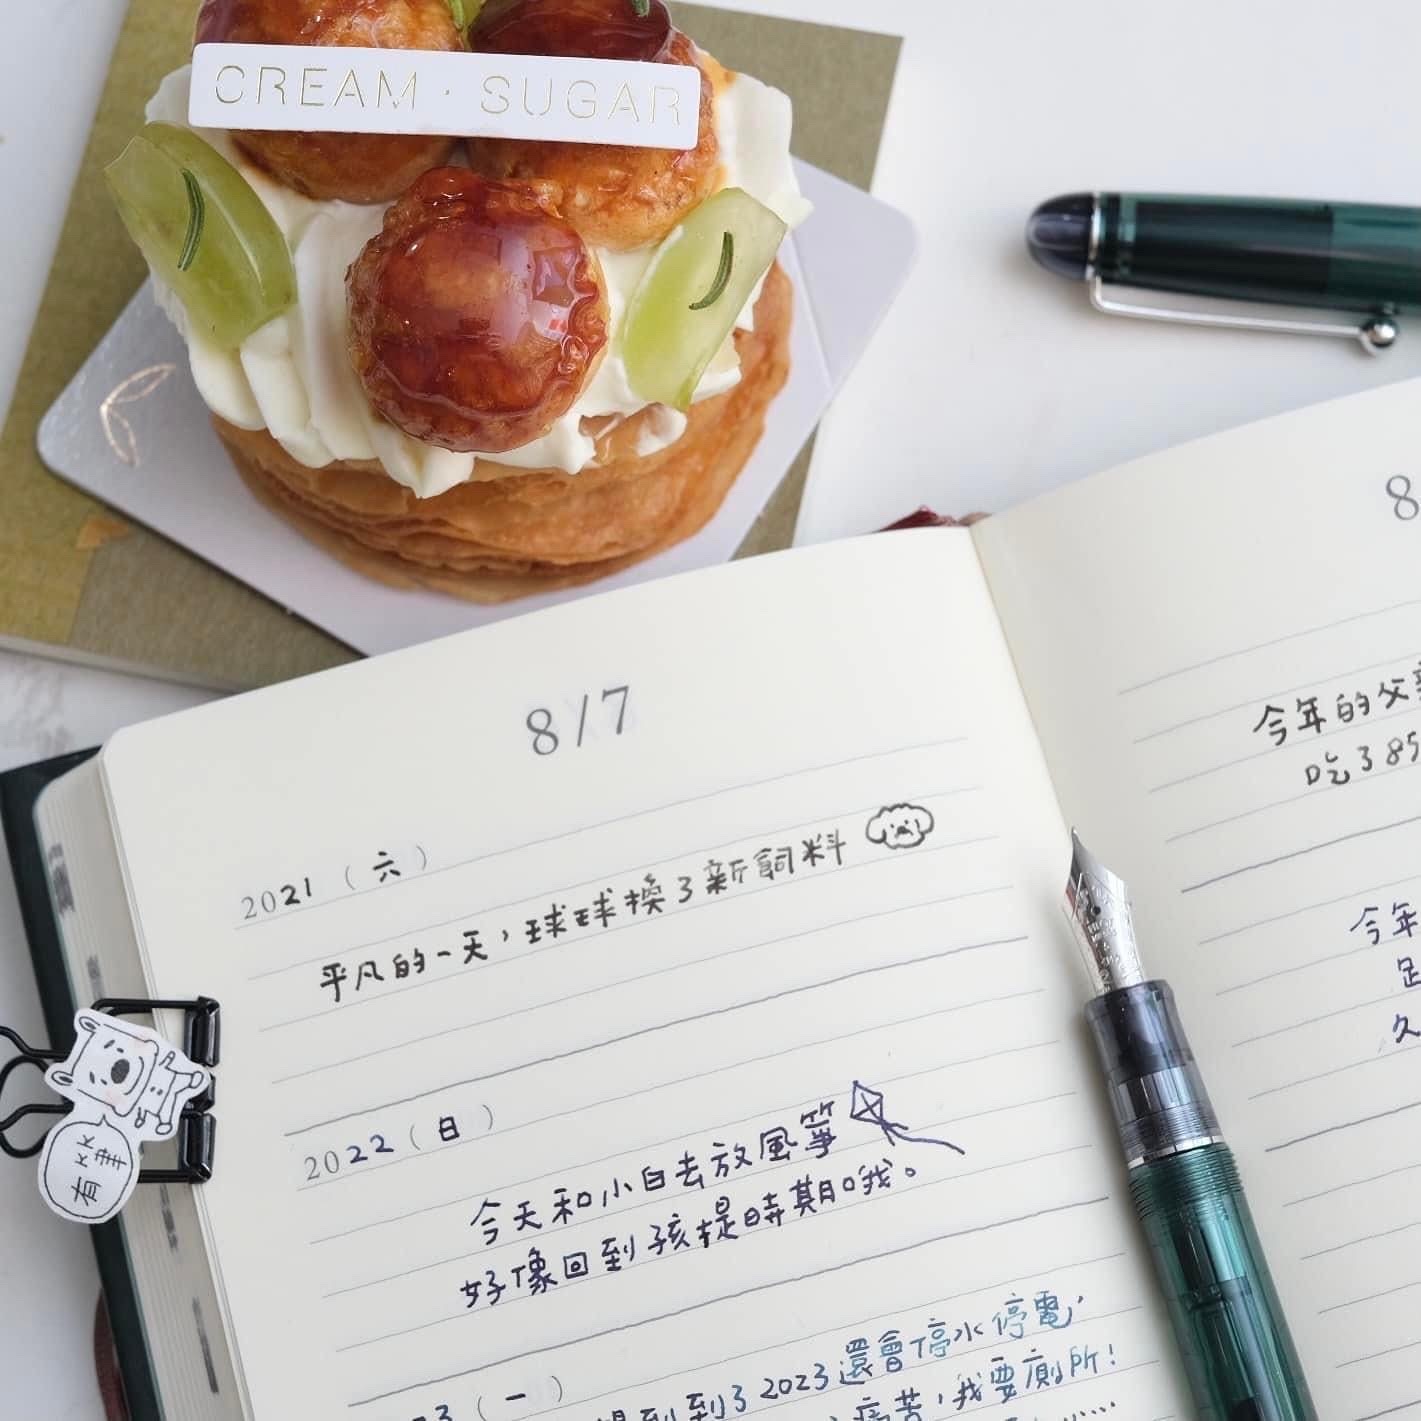 CREAM · SUGAR
8/7
2021（六）
平凡的一天，球球換了新飼料
2022（日）
今天和小白去放風箏
好像回到孩提時期哦。
3（一）
到了2023還會停水停電，
痛苦，我要廁所！
8
今年的父
吃了85
今年
足
久
有事